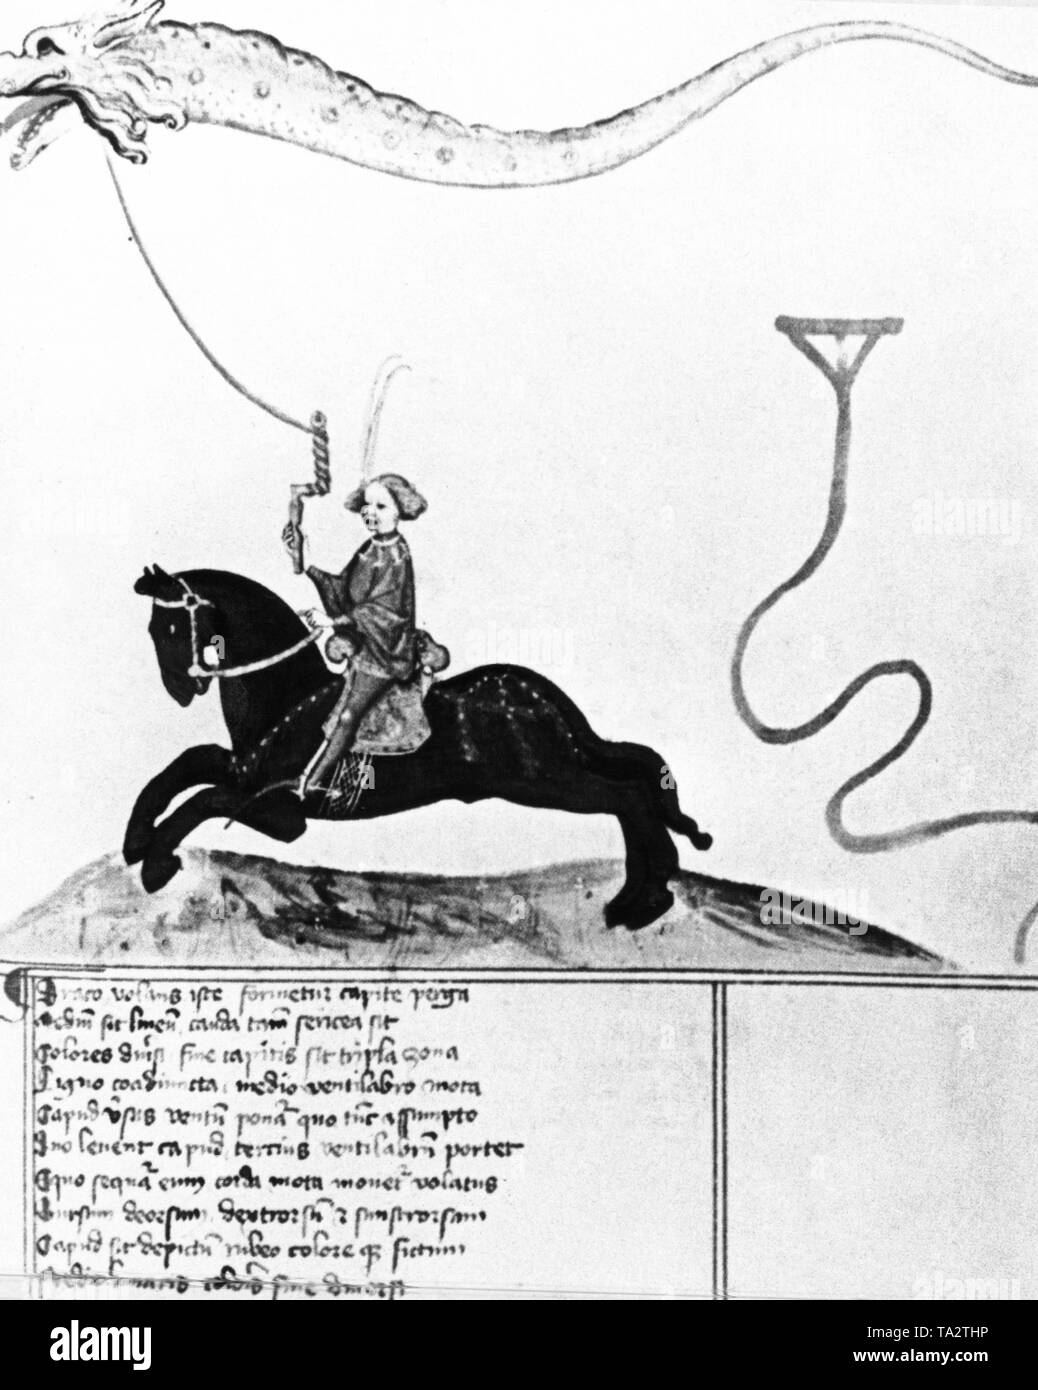 Draco volans iste formetur capite perga
medium sit lineum cauda tam sericea sit
Colores diversi fine capitis sit tripla zona
Ligno coadiuncta medio ventilabro mota
Capud versus ventum ponatur quo tunc assumpto
Duo levent capud tercius ventilabrum portet
Equo sequatur eum corda mota movetur volatus
Sursum deorsum dextrorsum & sinistrorsum
Capud sit depictum rubeo colore que fictum
fine diversi
alamy
Image ID: TA2THP
www.alamy.com